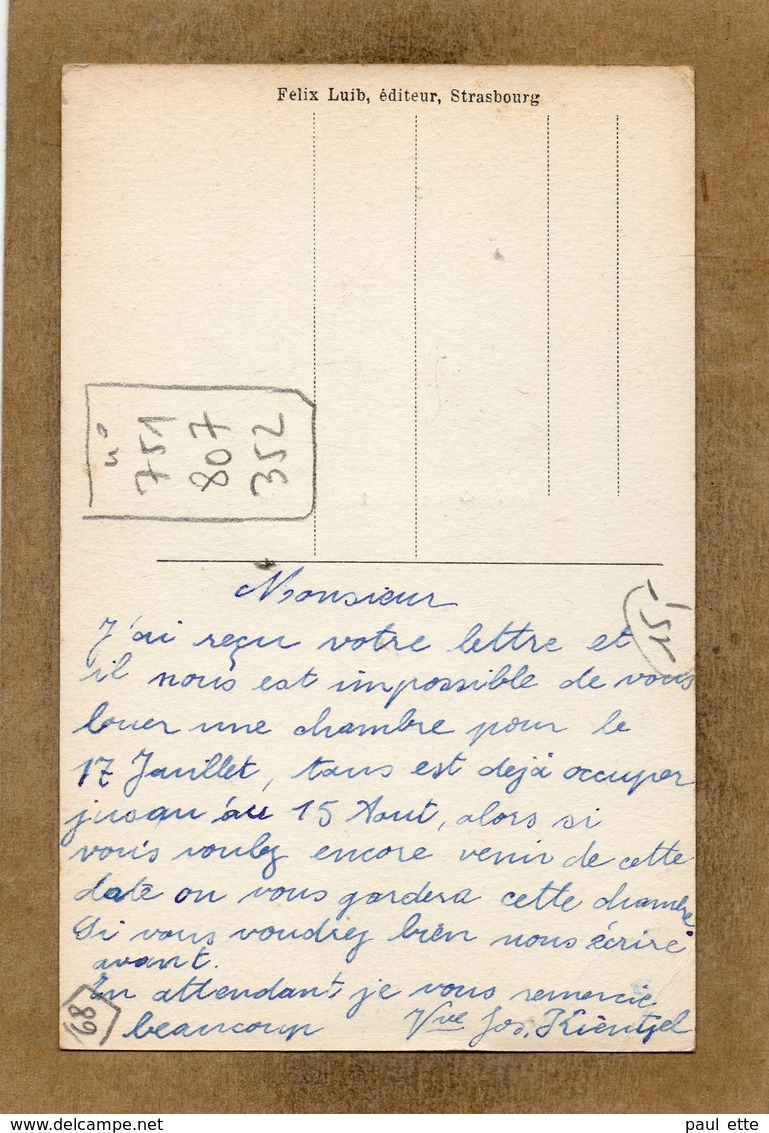 Felix Luib, éditeur, Strasbourg
n°
751
807
352
Monsieur
J'ai reçu votre lettre et
il nous est impossible de vous
louer une chambre pour le
17 Juillet, tous est dejà occuper
jusqu'au 15 Aout, alors si
vous voulez encore venir de cette
date on vous gardera cette chambre.
Si vous voudrez bien nous écrire
avant.
En attendant, je vous remercie
beaucoup Vve Jos. Kientzel
68
www.delcampe.net
paul ette